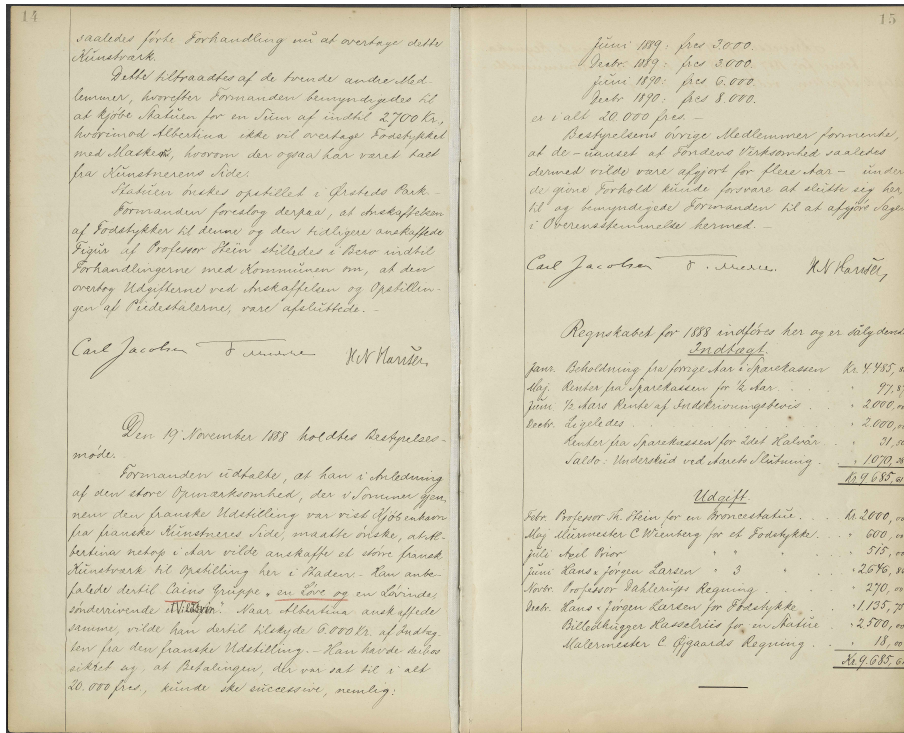 14
saaledes førte Forhandling nu at overtage dette
Kunstværk.
Dette tiltraadtes af de tvende andre Med-
lemmer, hvorefter Formanden bemyndigedes til
at kjøbe Statuen for en Sum af indtil 2700 Kr.,
hvorimod Albertina ikke vil overtage Fodstykket
med Masken, hvorom der ogsaa har været talt
fra Kunstnerens Side.
Statuen ønskes opstillet i Ørsteds Park.-
Formanden foreslog derpaa, at Anskaffelsen
af Fodstykker til denne og den tidligere anskaffede
Figur af Professor Stein stilledes i Bero indtil
Forhandlingerne med Kommunen om, at den
overtog Udgifterne ved Anskaffelsen og Opstillin-
gen af Piedestalerne, vare afsluttede.-
Carl Jacobsen
Den 19' November 1888 holdtes Bestyrelses-
møde.
Formanden udtalte, at han i Anledning
af den store Opmærksomhed, der i Sommer gjen-
nem den franske Udstilling var vist Kjøbenhavn
fra franske Kunstneres Side, maatte ønske, at Al-
bertina netop i Aar vilde anskaffe et større fransk
Kunstværk til Opstilling her i Staden.- Han anbe-
falede dertil Cains Gruppe „en Løve og en Løvinde,
sønderrivende et Vildsvin". Naar Albertina anskaffede
samme, vilde han dertil tilskyde 6.000 Kr. af Indtæg-
ten fra den franske Udstilling.- Han havde derhos
sikket sig, at Betalingen, der var sat til i alt
20.000 frcs, kunde ske successive, nemlig:
15
Juni 1889: frcs 3.000.
Decbr. 1889: frcs 3.000.
Juni 1890: frcs 6.000.
Decbr 1890: frcs 8.000.
er i alt 20.000 frcs.-
Bestyrelsens øvrige Medlemmer formente,
at de - uanset at Fondens Virksomhed saaledes
dermed vilde være afgjort for flere Aar - under
de givne Forhold kunde forsvare at slutte sig her
til og bemyndigede Formanden til at afgjøre Sagen
i Overensstemmelse hermed.-
Carl Jacobsen
Regnskabet for 1888 indføres her og er sålydende
Indtægt.
Janr. Beholdning fra forrige Aar i Sparekassen Kr. 4.485,
Maj. Renter fra Sparekassen for 1/2 Aar " 97,
Juni 1/2 Aars Rente af Indskrivningsbevis " 2000,
Decbr. Ligeledes " 2.000,
Renter fra Sparekassen for 2det Halvår " 31,
Saldo: Underskud ved Aarets Slutning " 1070,
Kr. 9.685,
Udgift.
Febr. Professor Th. Stein for en Broncestatue Kr. 2000,
Maj Murmester C Wienberg for et Fodstykke " 600,
Juli Axel Prior " " " 515,
Juni Hans & Jørgen Larsen " 3 " " 2646,
Novbr. Professor Dahlerups Regning " 270,
Decbr. Hans & Jørgen Larsen for Fodstykke " 1.135,
Billedhugger Hasselriis for en Statue " 2500,
Malermester C. Øggaards Regning " 18,
Kr. 9.685,